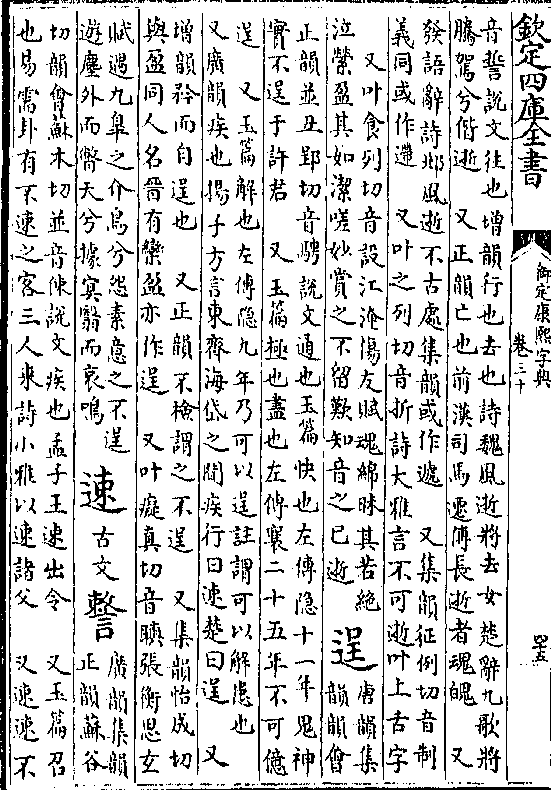 欽定四庫全書
御定康熙字典
卷三十
四五
音誓說文往也增韻行也去也詩魏風逝將去女楚辭九歌將
騰駕兮偕逝　又正韻亡也前漢司馬遷傳長逝者魂魄　又
發語辭詩邶風逝不古處集韻或作遾　又集韻征例切音制
義同或作遰　又叶之列切音折詩大雅言不可逝叶上舌字
又叶食列切音設江淹傷友賦魂綿昧其若絶
泣縈盈其如潔嗟妙賞之不留歎知音之已逝
逞
唐韻集
韻韻會
正韻並丑郢切音騁說文通也玉篇快也左傳隱十一年鬼神
實不逞于許君　又玉篇極也盡也左傳襄二十五年不可億
逞　又玉篇解也左傳隱九年乃可以逞註謂可以解患也
又廣韻疾也揚子方言東齊海岱之閒疾行曰速楚曰逞　又
增韻矜而自逞也　又正韻不檢謂之不逞　又集韻怡成切
與盈同人名晉有欒盈亦作逞　又叶癡真切音瞋張衡思玄
賦遇九皋之介鳥兮怨素意之不逞
遊塵外而瞥天兮據冥翳而哀鳴
速
古文
警
廣韻集韻
正韻蘇谷
切韻會蘇木切並音餗說文疾也孟子王速出令　又玉篇召
也易需卦有不速之客三人來詩小雅以速諸父　又速速不